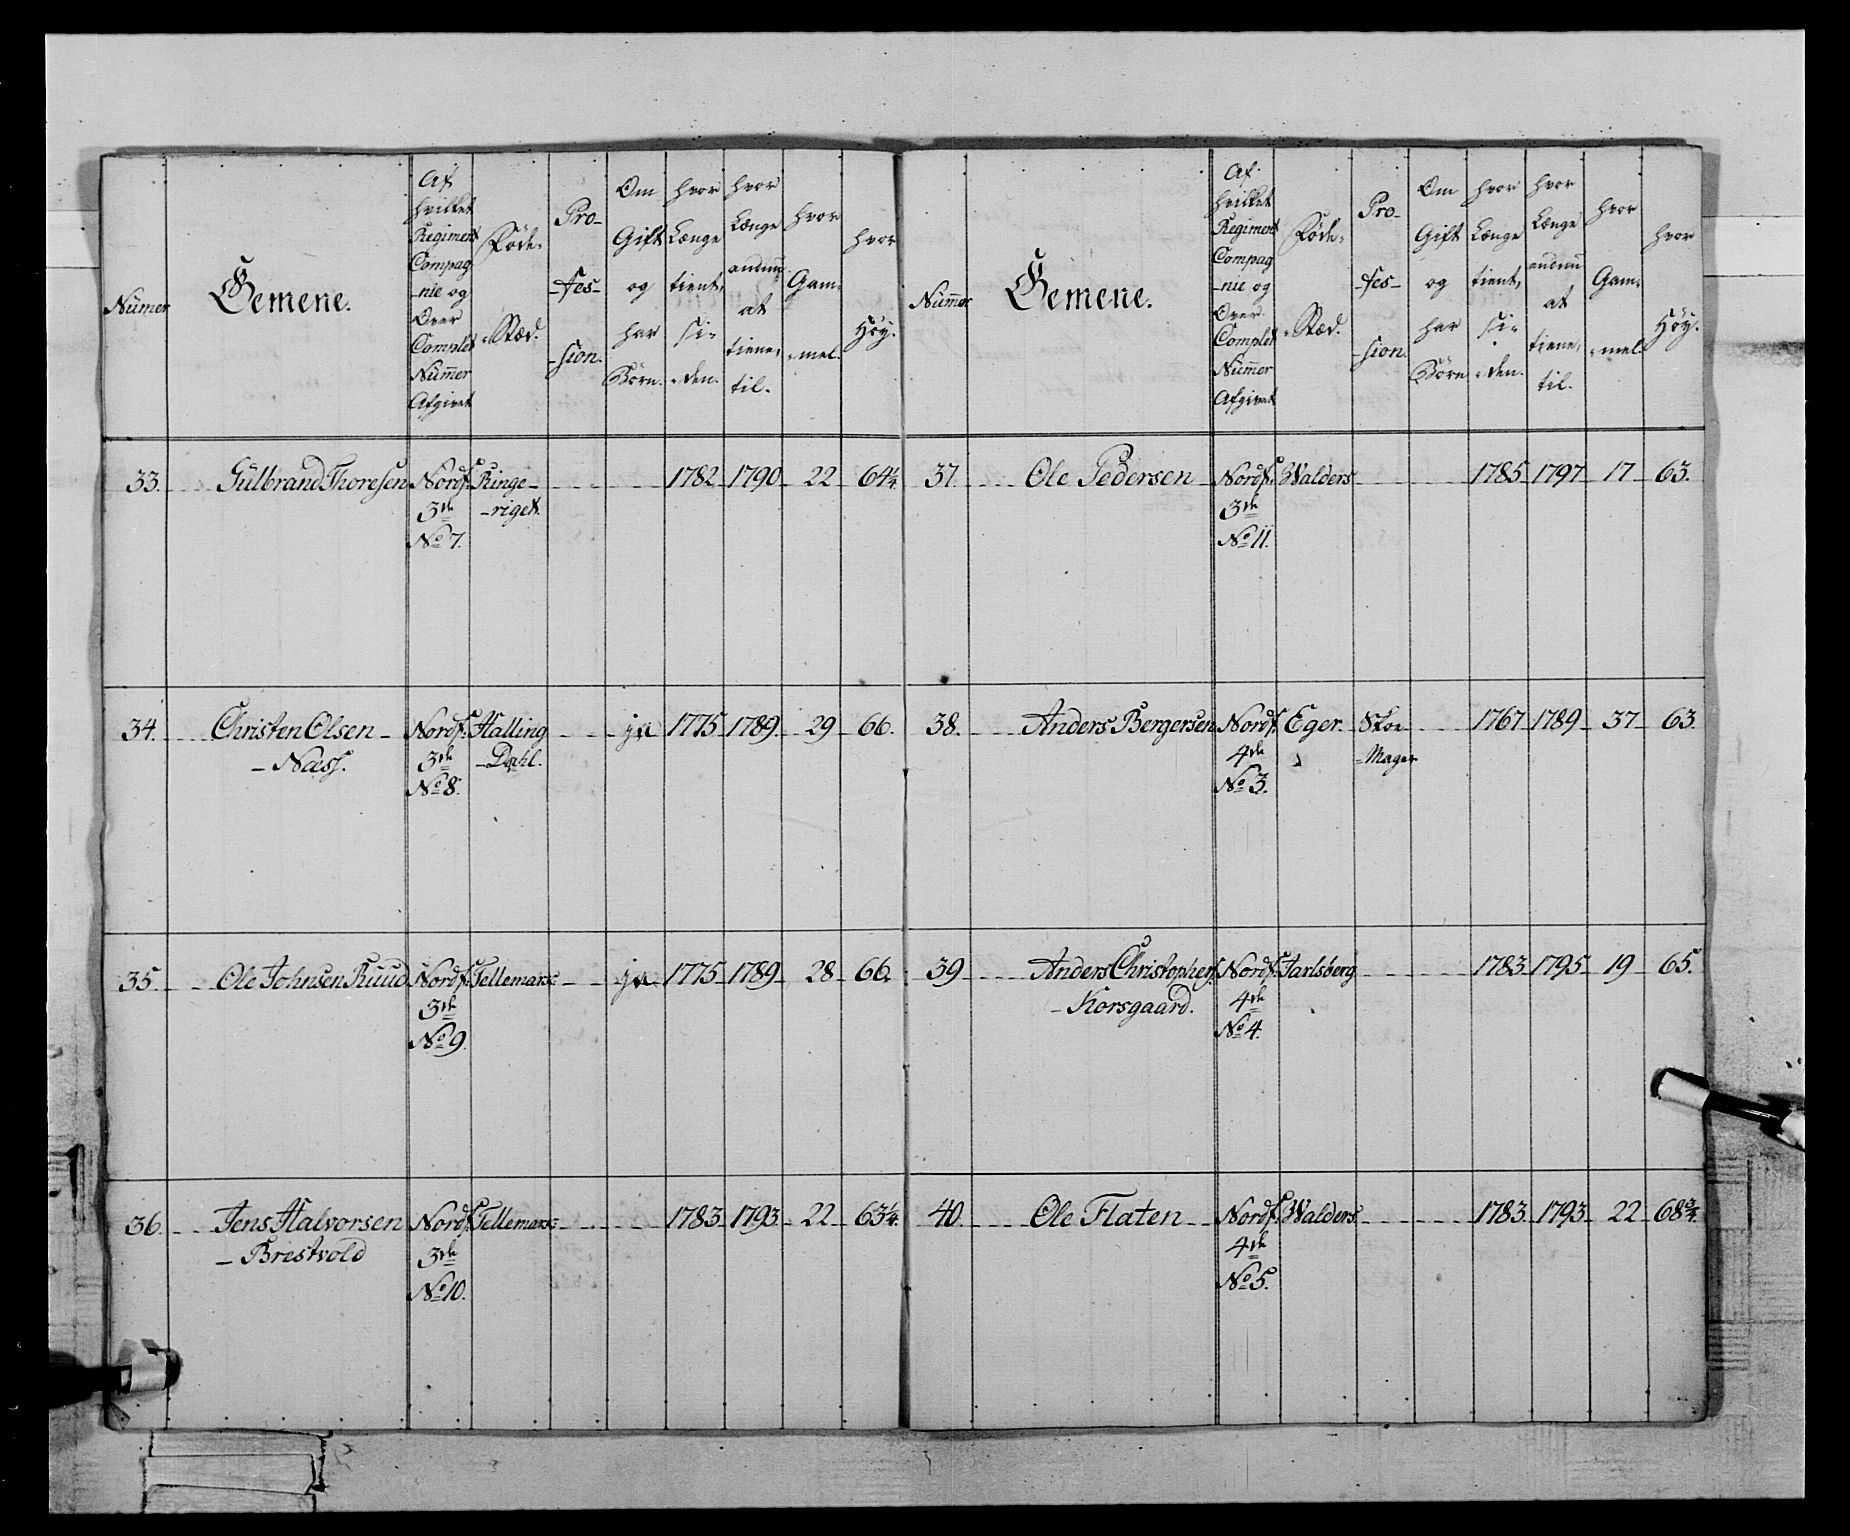 Numer
Gemene.
Af
hvilket
Regiment
Compag
-nie og
Over
Complet
Nummer
Afgivet
Føde-
-Stæd.
Pro-
-fes-
-sion.
Om
Gift
og
har
Børn.
hvor
Længe
tient,
si-
-den.
hvor
Længe
endnu
at
tiene,
til.
hvor
Gam-
-mel.
hvor
Høy.
33. Gulbrand Thoresen Nordf: Ringe- 1782 1790 22 64¼.
3de -riget.
No 7.
34. Christen Olsen Nordf: Halling ja 1775 1789. 29 66.
-Næss. 3de -Dahl.
No 8.
35. Ole Johnsen Ruud Nordf: Tellemark: ja 1775 1789 28 66.
3de
No 9.
36. Jens Halvorsen Nordf: Tellemark: 1783 1793 22 63¼.
-Brestvold 3de
No 10.
Nummer
Gemene.
Af
hvilket
Regiment
Compag
-nie og
Over
Complet
Nummer
Afgivet
Føde-
-Stæd.
Pro-
-fes-
-sion.
Om
Gift
og
har
Børn
hvor
Længe
tient,
si-
-den.
hvor
Længe
endnu
at
tiene,
til.
hvor
Gam-
-mel.
hvor
Høy.
37. Ole Pedersen Nordf: Walders 1785 1797 17 63.
3de
No 11.
38. Anders Bergersen Nordf: Eger. Skoe- 1767 1789 37 63.
4de -Mager
No 3.
39 Anders Christophers: Nordf: Jarlsberg 1783 1795 19 65.
-Korsgaard. 4de
No 4.
40. Ole Flaten Nordf: Walders. 1783 1793 22 68¾.
4de
No 5.